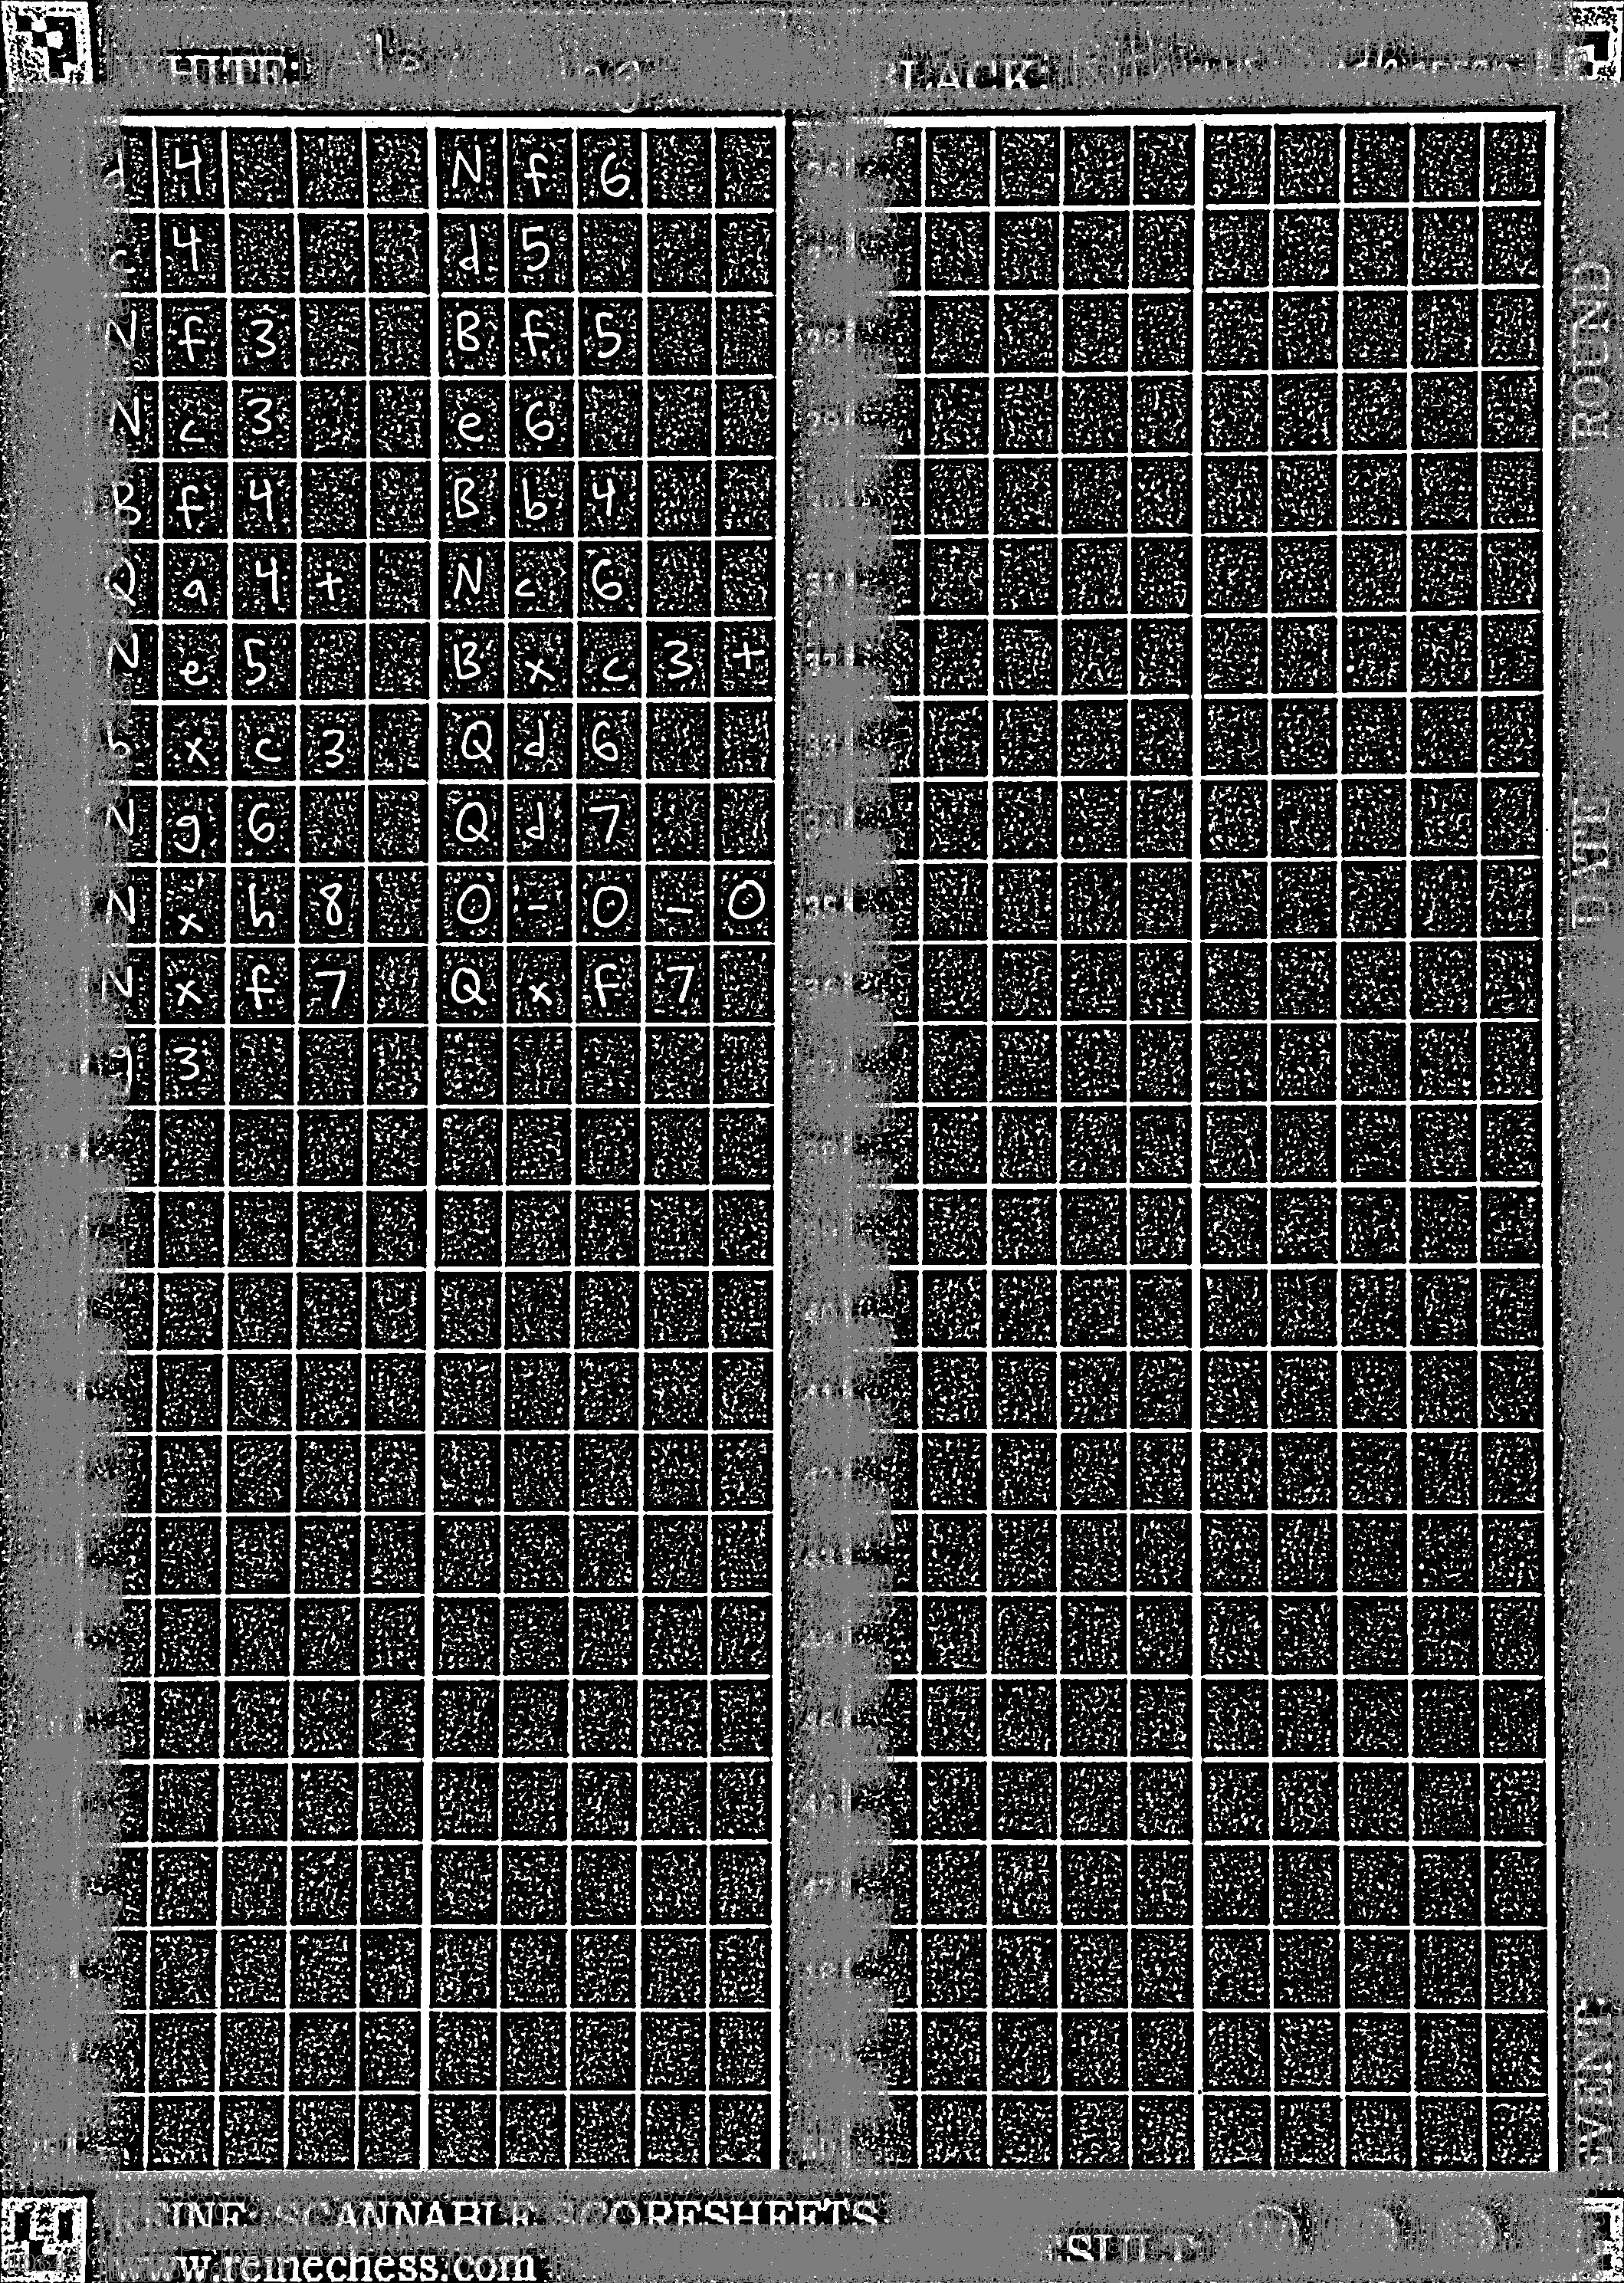 WHITE:
BLACK:
d 4 N f 6
c 4 d 5
N f 3 B f 5
N c 3 e 6
B f 4 B b 4
Q a 4 + N c 6
N e 5 B x c 3 +
b x c 3 Q d 6
N g 6 Q d 7
N x h 8 0 - 0 - 0
N x f 7 Q x f 7
g 3
ROUND
DATE
EVENT
SCANNABLE SCORESHEETS
www.reinechess.com